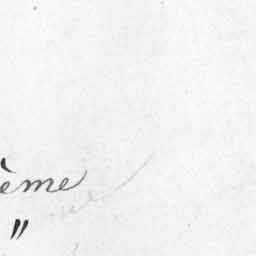 ème
"